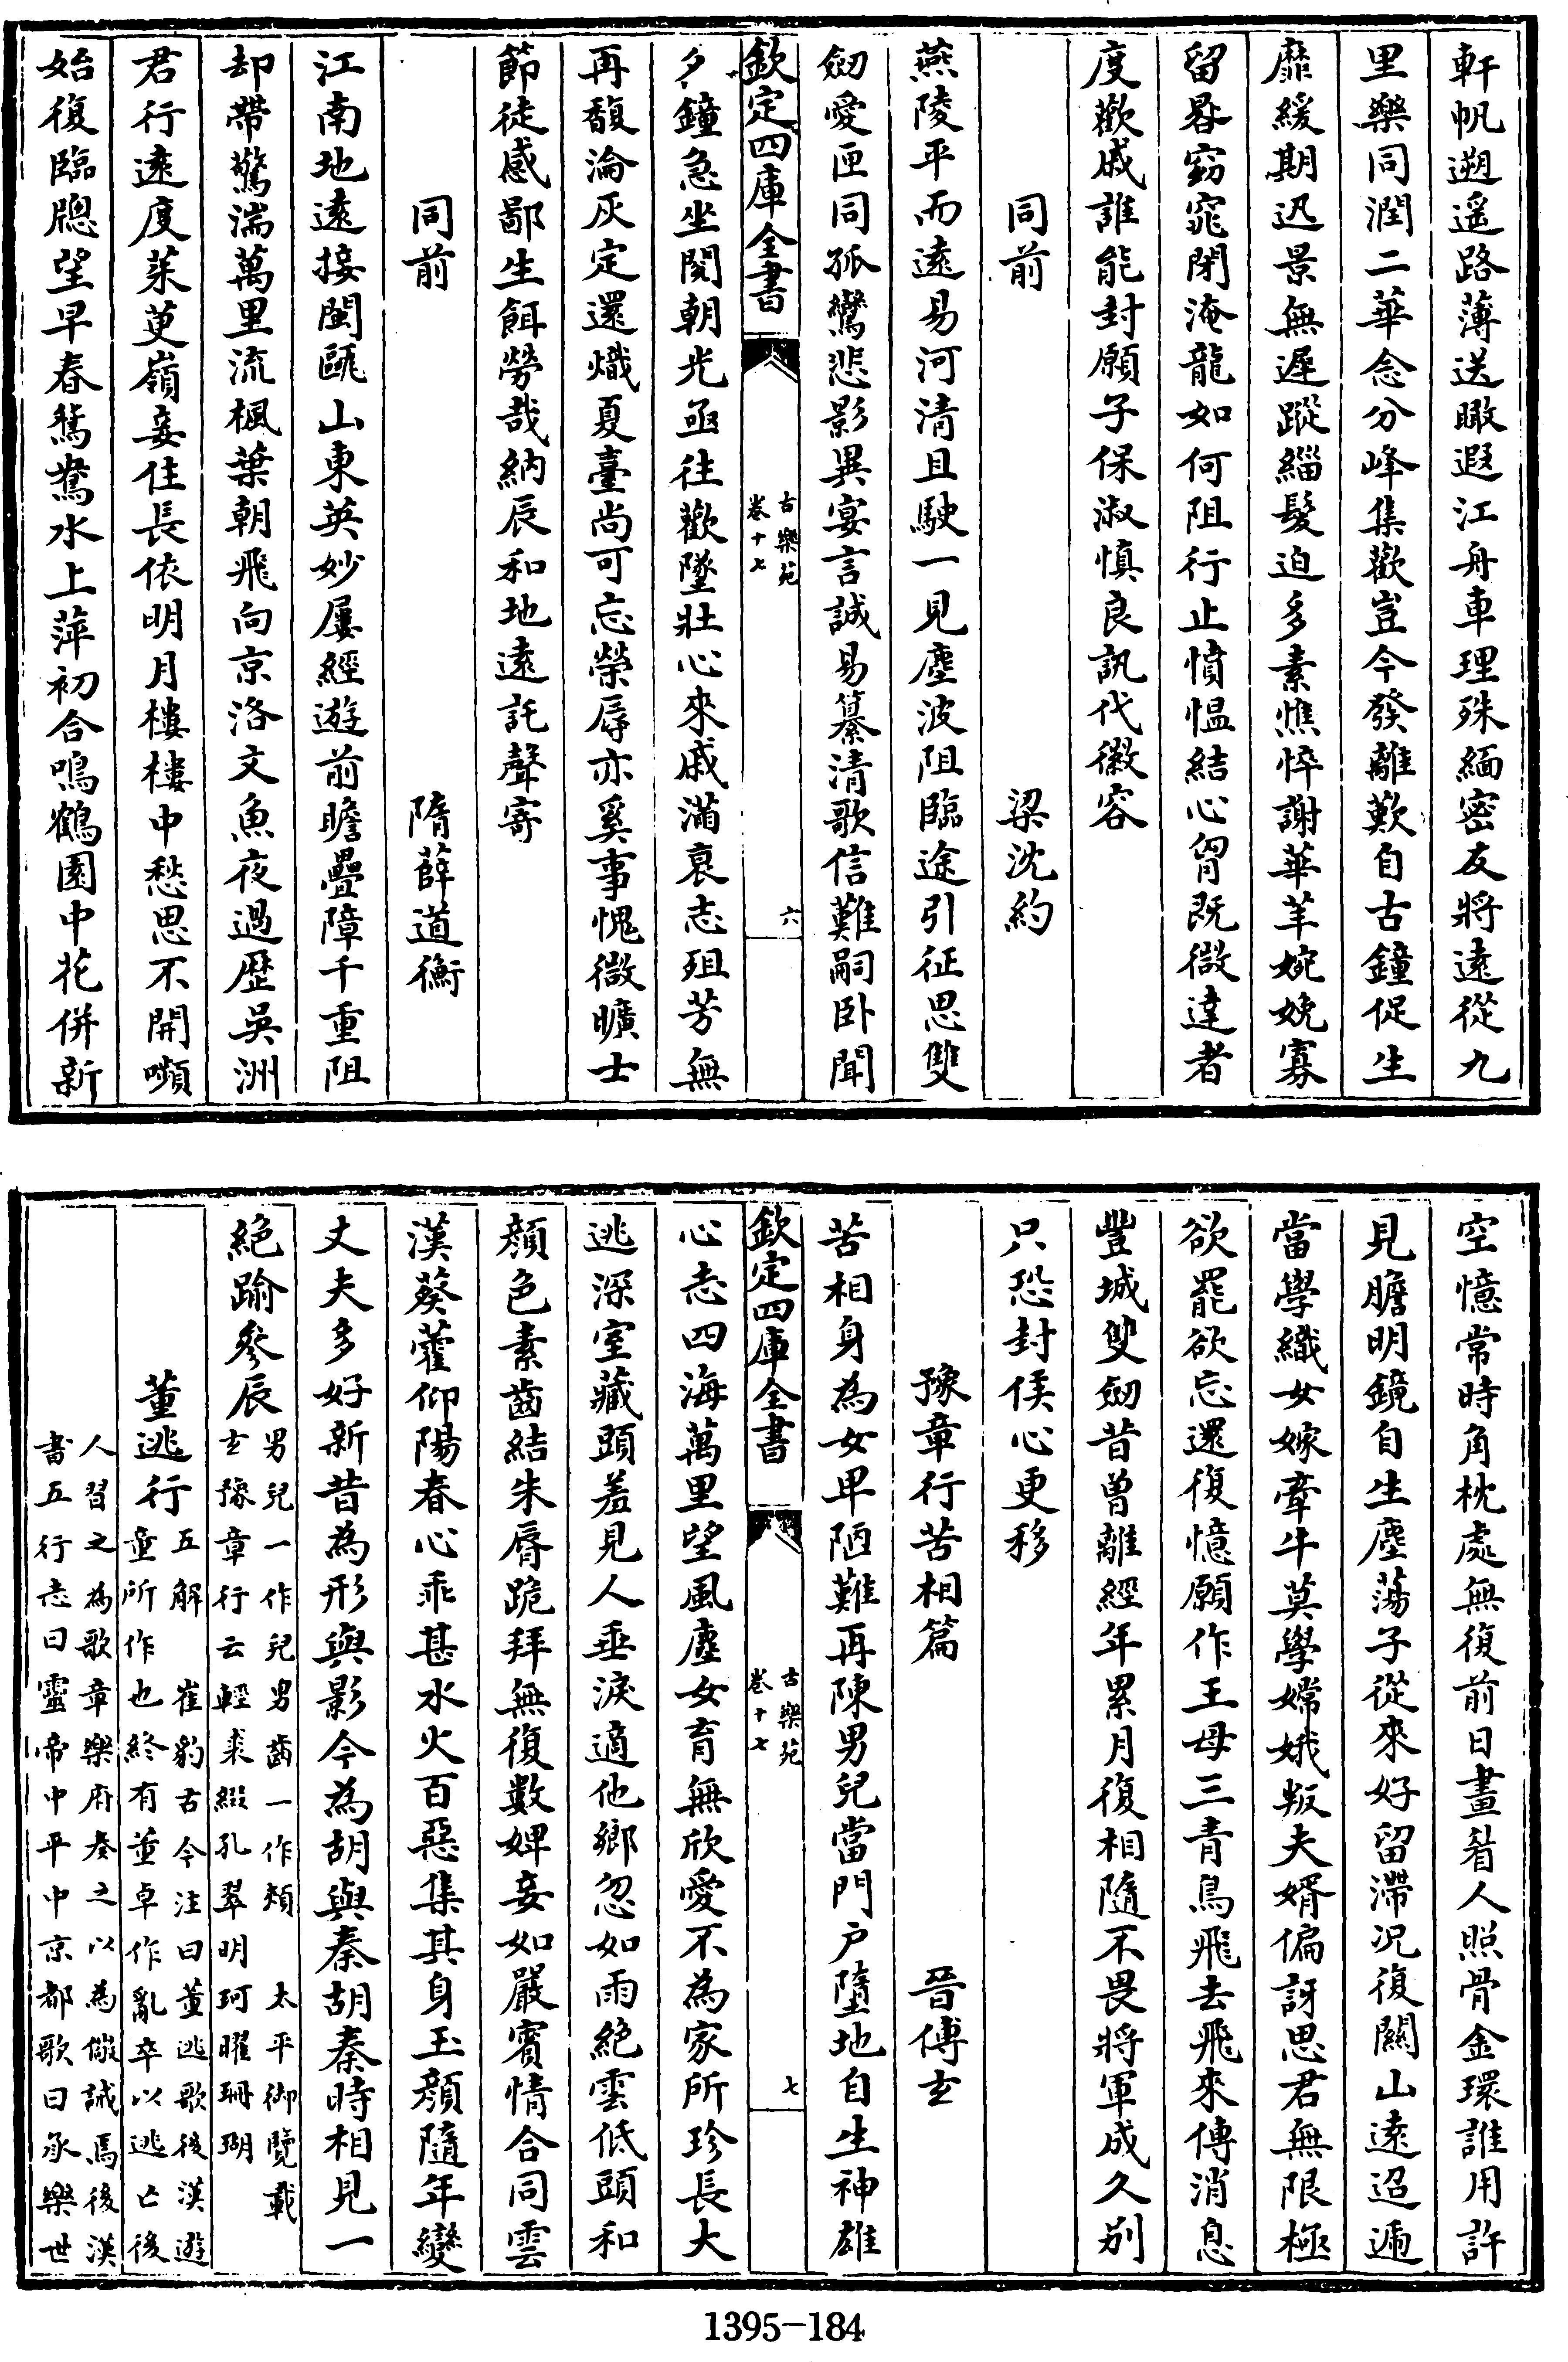 軒帆遡遥路薄送瞰遐江舟車理殊緬密友將遠從九
里樂同潤二華念分峰集歡豈今發離歎自古鐘促生
靡緩期迅景無遲蹤緇髪迫多素憔悴謝華芊婉娩寡
留晷窈窕閉淹龍如何阻行止憤愠結心胷既微達者
度歡戚誰能封願子保淑慎良訊代徽容
同前 梁沈約
燕陵平而遠易河清且駛一見塵波阻臨途引征思雙
劒愛匣同孤鸞悲影異宴言誠易纂清歌信難嗣卧聞
欽定四庫全書 古樂苑 卷十七 六
夕鐘急坐閲朝光亟往歡墜壯心來戚滿衰志殂芳無
再馥淪灰定還熾夏臺尚可忘榮辱亦奚事愧微曠士
節徒感鄙生餌勞哉納辰和地遠託聲寄
同前 隋薛道衡
江南地遠接閩甌山東英妙屢經遊前瞻疊障千重阻
却帶驚湍萬里流楓葉朝飛向京洛文魚夜過歴吳洲
君行遠度茱萸嶺妾住長依明月樓樓中愁思不開嚬
始復臨牕望早春鴛鴦水上萍初合鳴鶴園中花併新
空憶常時角枕處無復前日畫眉人照骨金環誰用許
見膽明鏡自生塵蕩子從來好留滯况復關山遠迢遞
當學織女嫁牽牛莫學嫦娥叛夫婿偏訝思君無限極
欲罷欲忘還復憶願作王母三青鳥飛去飛來傳消息
豐城雙劒昔曾離經年累月復相隨不畏將軍成久别
只恐封侯心更移
豫章行苦相篇 晉傅玄
苦相身為女卑陋難再陳男兒當門户墮地自生神雄
欽定四庫全書 古樂苑 卷十七 七
心志四海萬里望風塵女育無欣愛不為家所珍長大
逃深室藏頭羞見人垂淚適他鄉忽如雨絶雲低頭和
顔色素齒結朱脣跪拜無復數婢妾如嚴賓情合同雲
漢葵藿仰陽春心乖甚水火百惡集其身玉顔隨年變
丈夫多好新昔為形與影今為胡與秦胡秦時相見一
絶踰參辰 男兒一作兒男齒一作頰 太平御覽載
玄豫章行云輕裘綴孔翠明珂曜珊瑚
董逃行 五解 崔豹古今注曰董逃歌後漢遊
童所作也終有董卓作亂卒以逃亡後
人習之為歌章樂府奏之以為儆誡焉後漢
書五行志曰靈帝中平中京都歌曰承樂世
1395-184